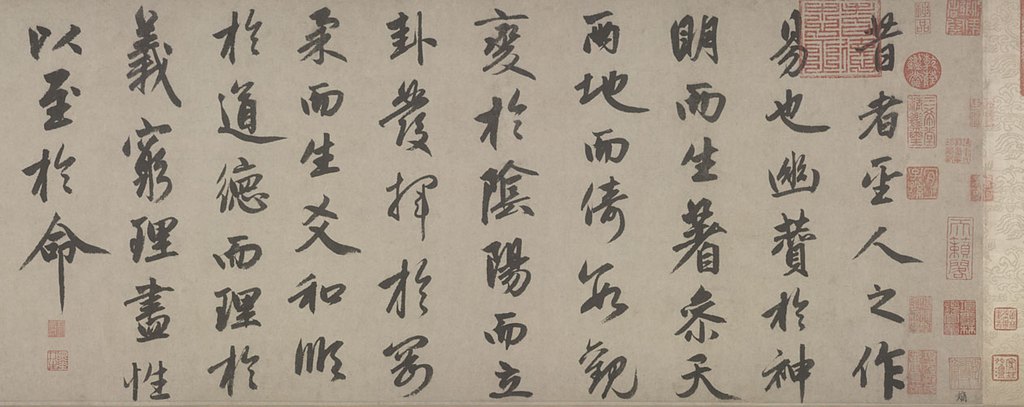 天籟閣
昔者聖人之作
易也幽贊於神
明而生蓍參天
兩地而倚數觀
變於陰陽而立
卦發揮於剛
柔而生爻和順
於道德而理於
義窮理盡性
以至於命